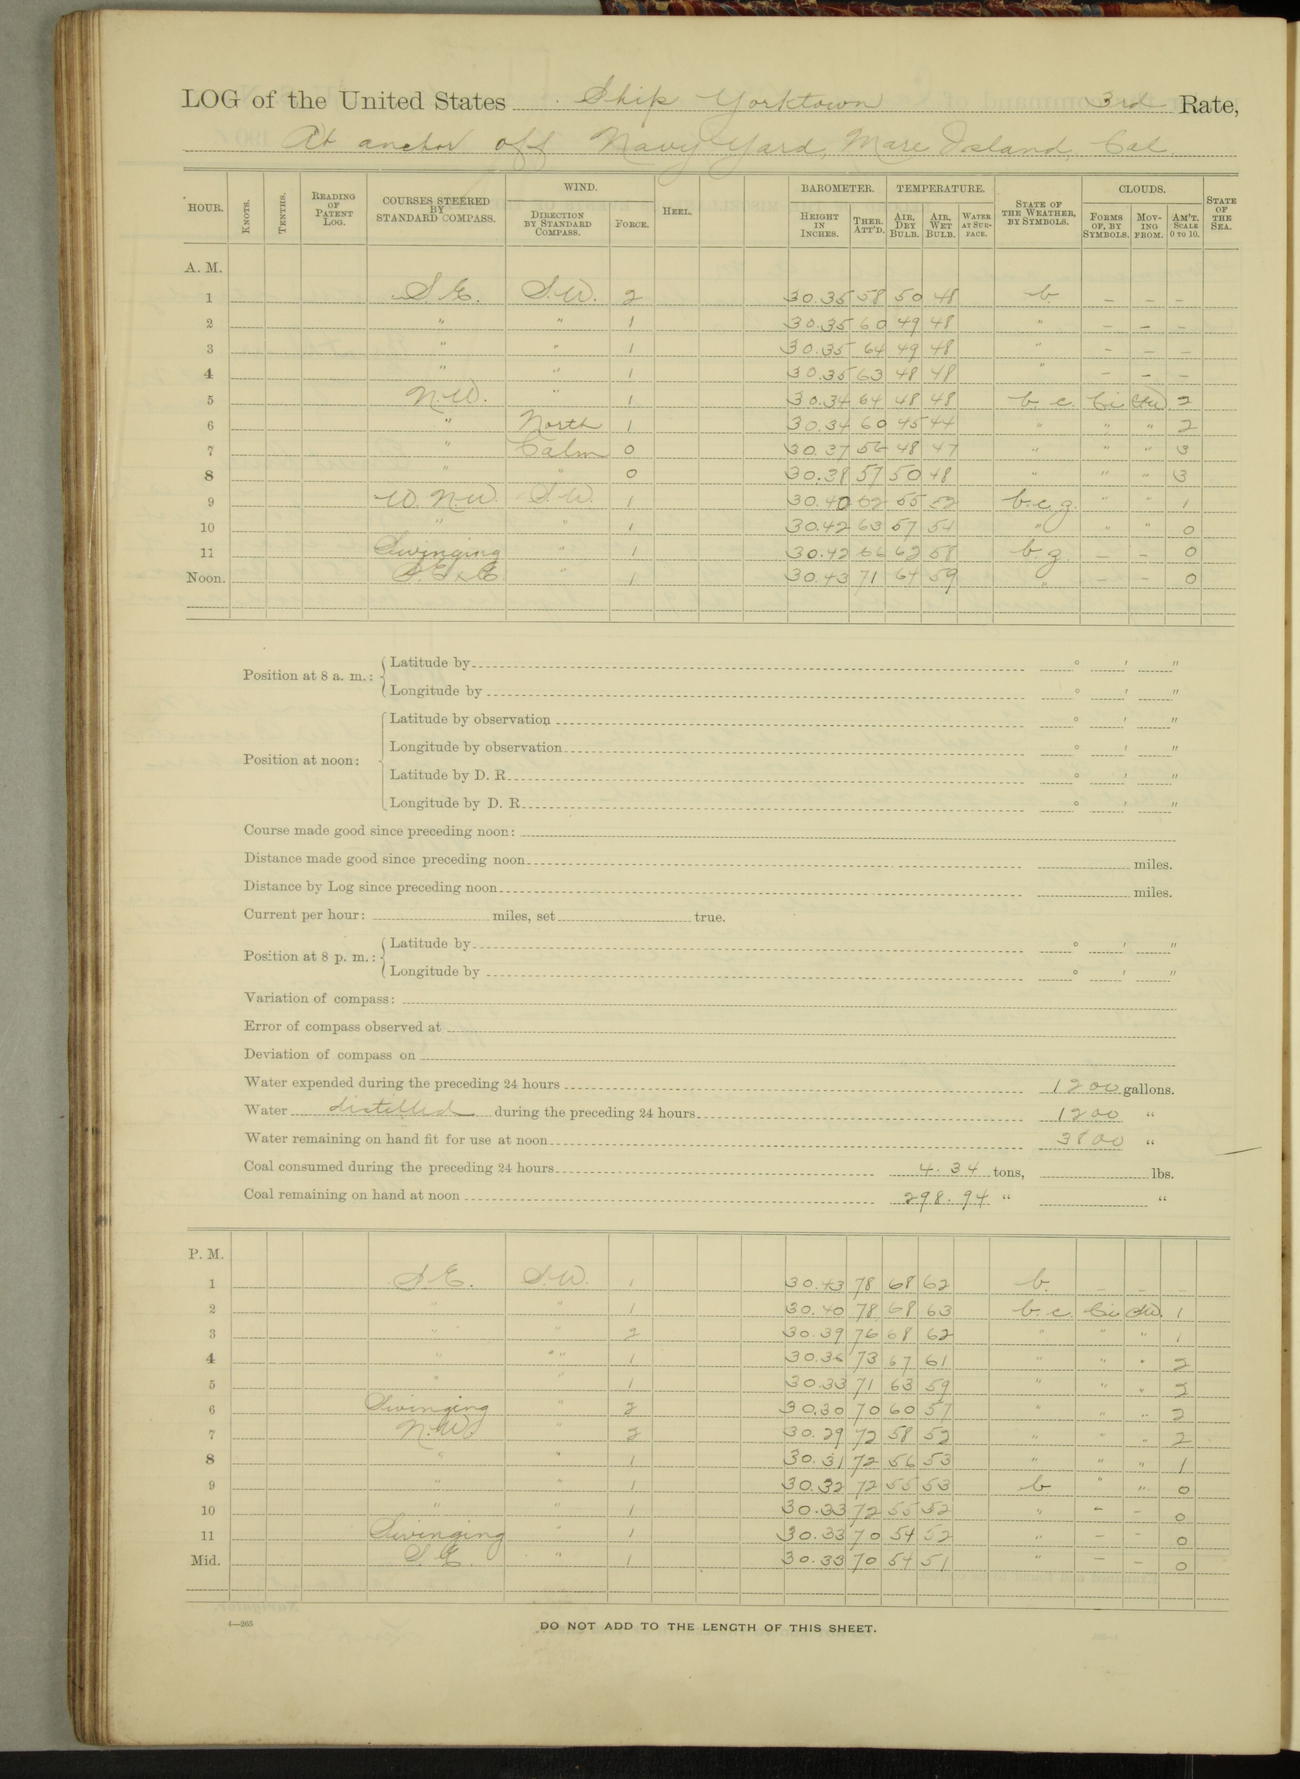 LOG of the United States Ship Yorktown 3rd Rate,
At anchor off Navy Yard, Mare Island, Cal.
HOUR. KNOTS. TENTHS. READING OF PATENT LOG. COURSES STEERED BY STANDARD COMPASS. WIND. DIRECTION BY STANDARD COMPASS. FORCE. HEEL. BAROMETER. HEIGHT IN INCHES. THER. ATT'D. TEMPERATURE. AIR, DRY BULB. AIR, WET BULB. WATER AT SURFACE. STATE OF THE WEATHER, BY SYMBOLS. CLOUDS. FORMS OF, BY SYMBOLS. MOVING FROM. AM'T. SCALE 0 TO 10. STATE OF THE SEA.
A. M.
1 S.E. S.W. 2 30.35 58 50 48 b. – – –
2 " " 1 30.35 60 49 48 " – – –
3 " " 1 30.35 64 49 48 " – – –
4 " " 1 30.35 63 48 48 " – – –
5 N.W. " 1 30.34 64 48 48 b. c. Ci 2
6 " North 1 30.34 60 45 44 " " " 2
7 " Calm 0 30.37 56 48 47 " " " 3
8 " " 0 30.38 57 50 48 " " " 3
9 W.N.W. S.W. 1 30.40 62 55 52 b.c.z. " " 1
10 " " 1 30.42 63 57 54 " " " 0
11 Swinging " 1 30.42 66 62 58 b.z. – – 0
Noon. S.ExE. " 1 30.43 71 64 59 " – – 0
Position at 8 a. m.: Latitude by ° ′ ″
Longitude by ° ′ ″
Position at noon: Latitude by observation ° ′ ″
Longitude by observation ° ′ ″
Latitude by D. R. ° ′ ″
Longitude by D. R. ° ′ ″
Course made good since preceding noon:
Distance made good since preceding noon miles.
Distance by Log since preceding noon miles.
Current per hour: miles, set true.
Position at 8 p. m.: Latitude by ° ′ ″
Longitude by ° ′ ″
Variation of compass:
Error of compass observed at
Deviation of compass on
Water expended during the preceding 24 hours 1200 gallons.
Water distilled during the preceding 24 hours 1200 "
Water remaining on hand fit for use at noon 3800 "
Coal consumed during the preceding 24 hours 4.34 tons, lbs.
Coal remaining on hand at noon 298.94 " "
P. M.
1 S.E. S.W. 1 30.43 78 68 62 b. – – –
2 " " 1 30.40 78 68 63 b. c. Ci 1
3 " " 2 30.39 76 68 62 " " " 1
4 " " 1 30.36 73 67 61 " " " 2
5 " " 1 30.33 71 63 59 " " " 2
6 Swinging " 2 30.30 70 60 57 " " " 2
7 N.W. " 2 30.29 72 58 52 " " " 2
8 " " 1 30.31 72 56 53 " " " 1
9 " " 1 30.32 72 55 53 b " " 0
10 " " 1 30.33 72 55 52 " – – 0
11 Swinging " 1 30.33 70 54 52 " – – 0
Mid. S.E. " 1 30.33 70 54 51 " – – 0
4—265
DO NOT ADD TO THE LENGTH OF THIS SHEET.